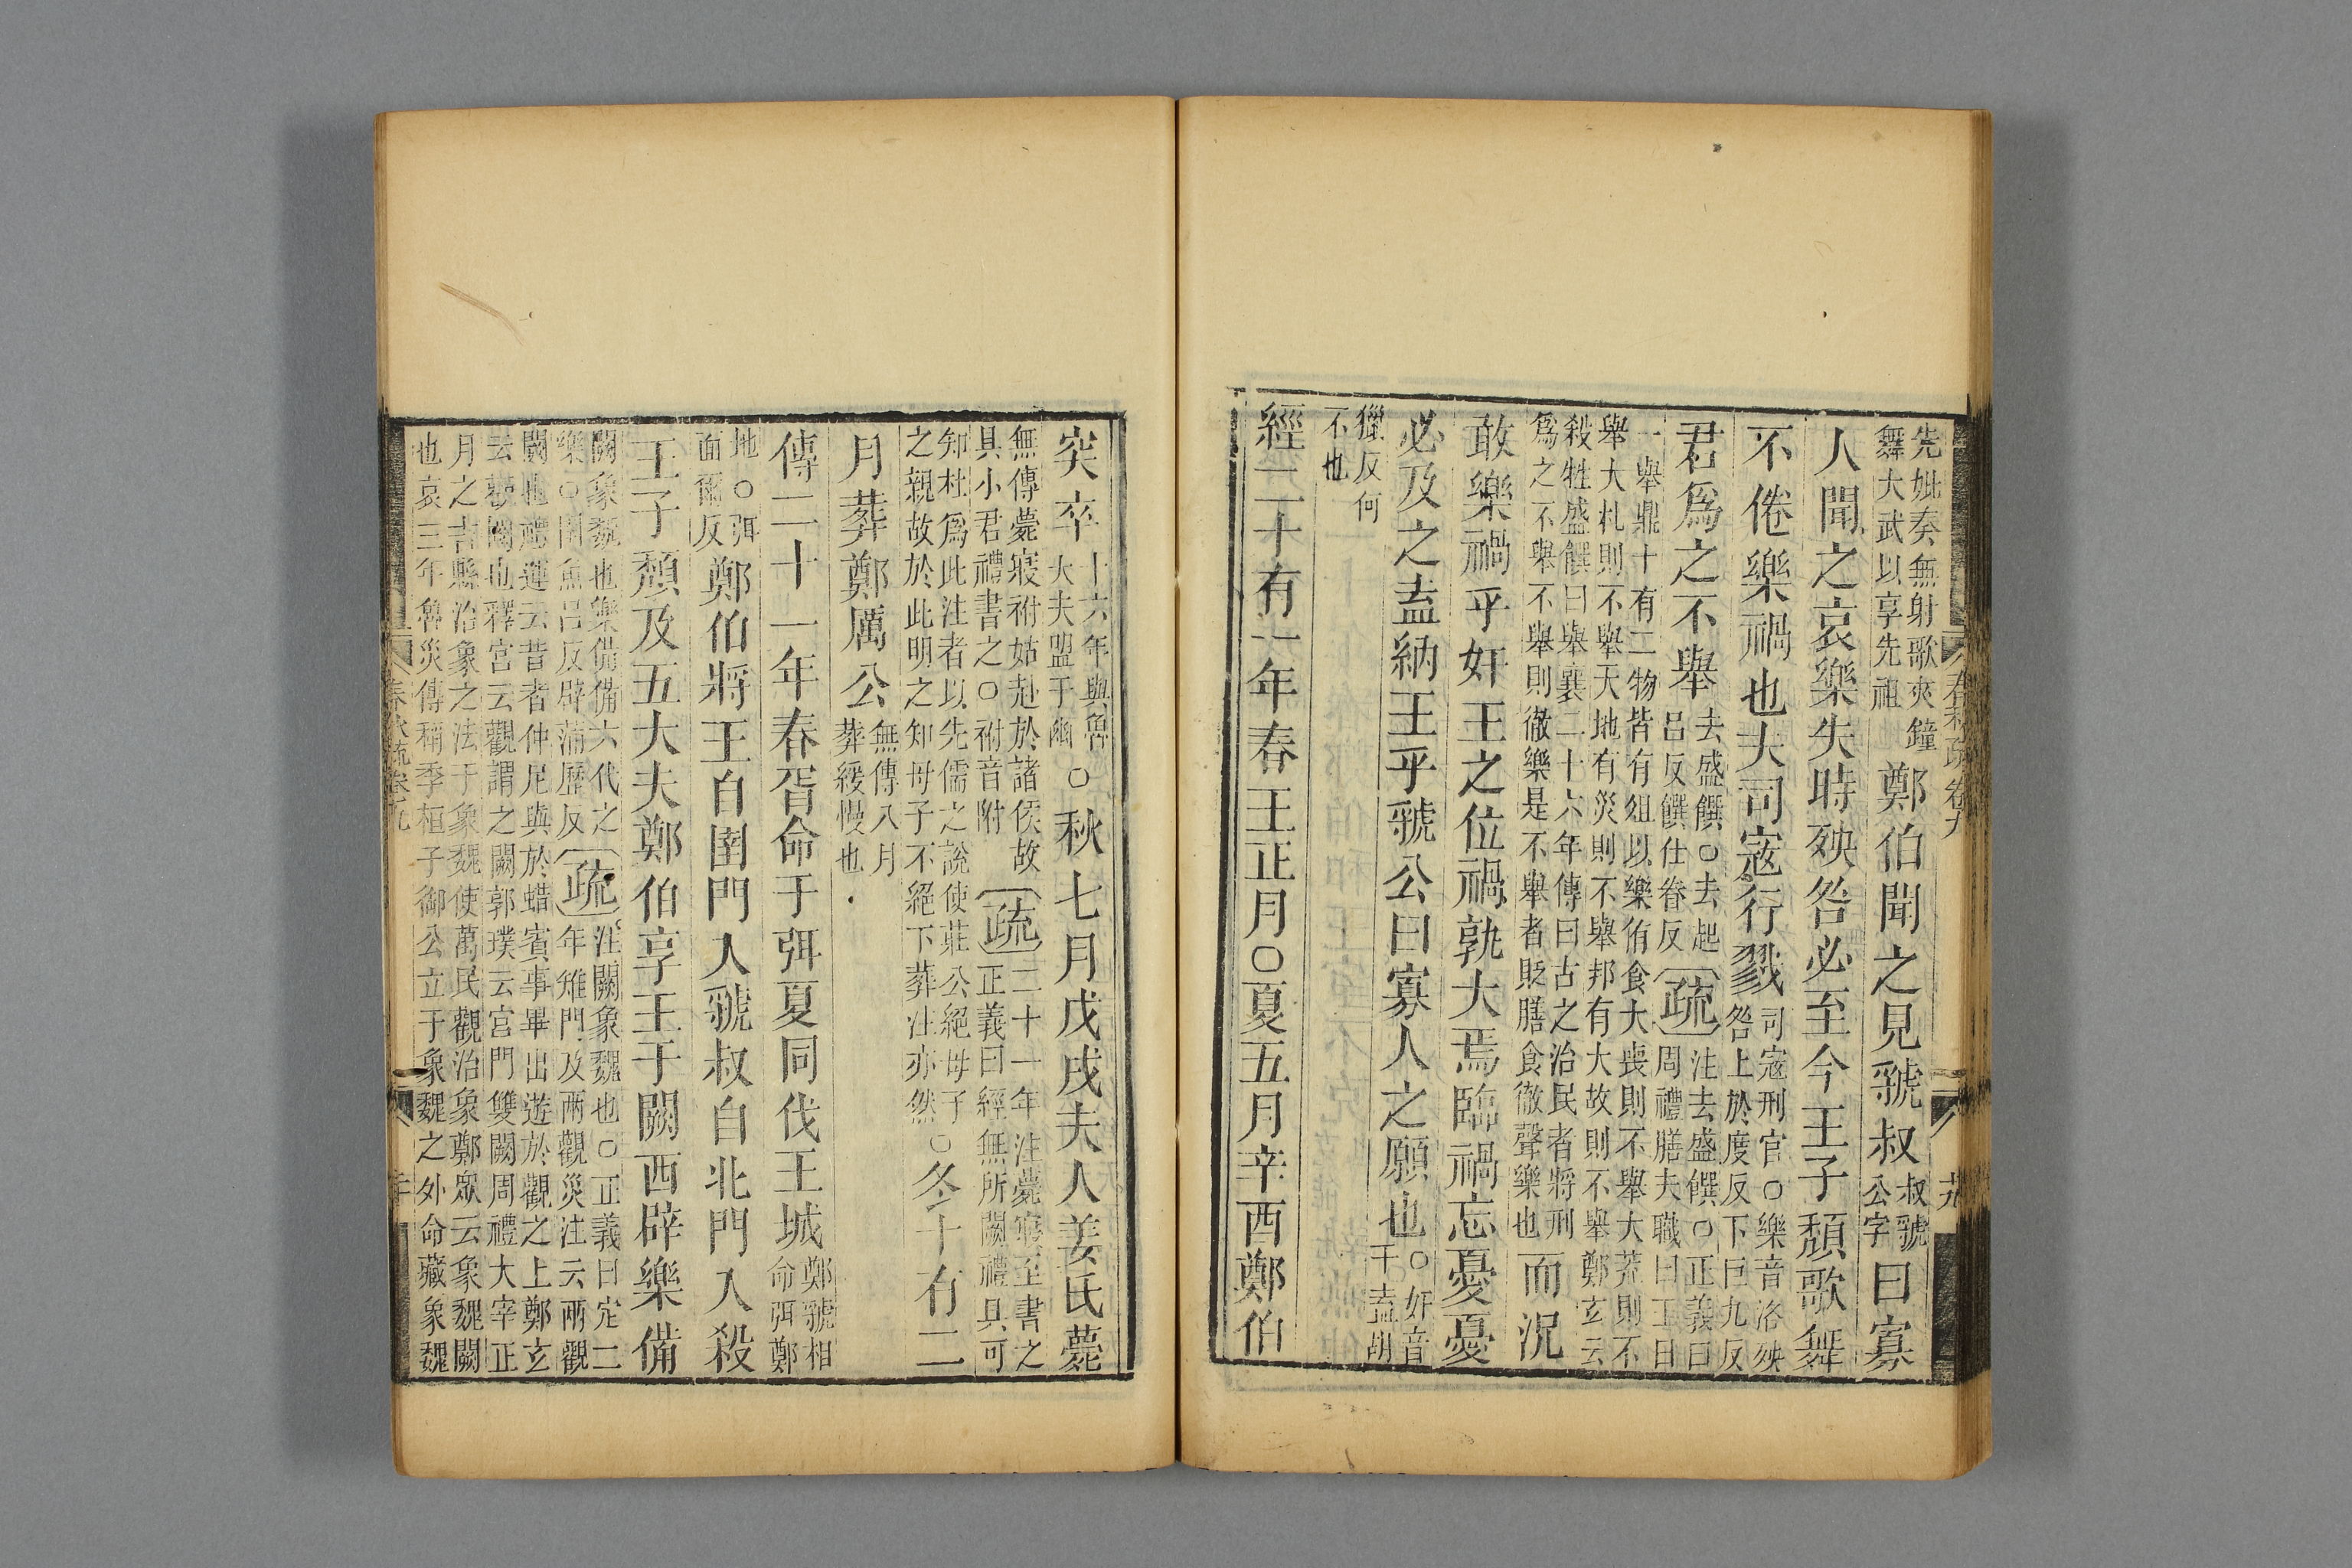 先妣奏無射歌夾鐘
舞大武以享先祖
鄭伯聞之見虢叔
叔虢
公字
曰寡
人聞之哀樂失時殃咎必至今王子頹歌舞
不倦樂禍也夫司寇行戮
司寇刑官○樂音洛殃
咎上於度反下巨九反
君爲之不舉
去盛饌○去起
呂反饌仕眷反
疏
注去盛饌○正義曰
周禮膳夫職曰王日
一舉鼎十有二物皆有俎以樂侑食大喪則不舉大荒則不
舉大札則不舉天地有災則不舉邦有大故則不舉鄭玄云
殺牲盛饌曰舉襄二十六年傳曰古之治民者將刑
爲之不舉不舉則徹樂是不舉者貶膳食徹聲樂也
而況
敢樂禍乎奸王之位禍孰大焉臨禍忘憂憂
必及之盍納王乎虢公曰寡人之願也
○奸音
干盍胡
獵反何
不也
經二十有一年春王正月○夏五月辛酉鄭伯
突卒
十六年與魯
大夫盟于幽
○秋七月戊戌夫人姜氏薨
無傳薨寢祔姑赴於諸侯故
具小君禮書之○祔音附
疏
二十一年注薨寢至書之
正義曰經無所闕禮具可
知杜爲此注者以先儒之說使莊公絕母子
之親故於此明之知母子不絕下葬注亦然
○冬十有二
月葬鄭厲公
無傳八月
葬緩慢也
傳二十一年春胥命于弭夏同伐王城
鄭虢相
命弭鄭
地○弭
面爾反
鄭伯將王自圉門入虢叔自北門入殺
王子頹及五大夫鄭伯享王于闕西辟樂備
闕象魏也樂備備六代之
樂○圉魚呂反辟蒲歷反
疏
注闕象魏也○正義曰定二
年雉門及兩觀災注云兩觀
闕也禮運云昔者仲尼與於蜡賓事畢出遊於觀之上鄭玄
云觀闕也釋宮云觀謂之闕郭璞云宮門雙闕周禮大宰正
月之吉縣治象之法于象魏使萬民觀治象鄭眾云象魏闕
也哀三年魯災傳稱季桓子御公立于象魏之外命藏象魏